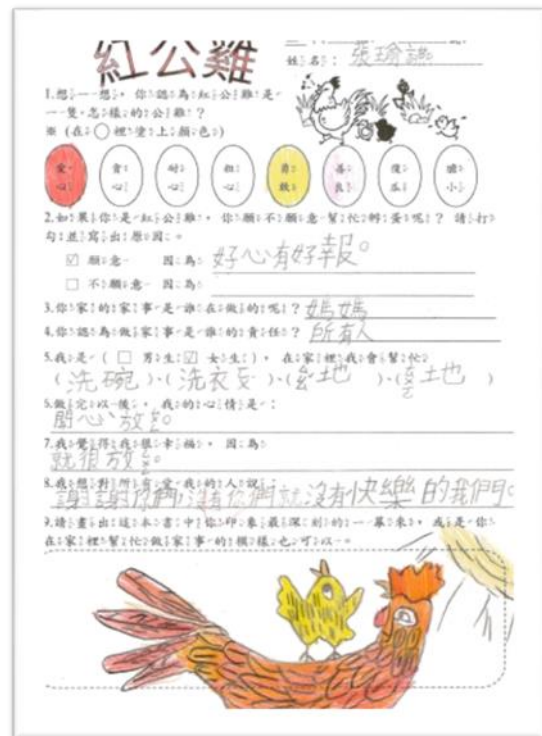 紅公雞
姓名：張瑜
1.想一想，你認為紅公雞是
一隻怎樣的公雞？
※（在○裡塗上顏色）
愛心 貪心 耐心 粗心 勇敢 善良 傻瓜 膽小
2.如果你是紅公雞，你願不願意幫忙孵蛋呢？請打
勾並寫出原因。
☑ 願意 因為 好心有好報。
□ 不願意 因為
3.你家的家事是誰在做的呢？媽媽
4.你認為做家事是誰的責任？所有人
5.我是（□ 男生☑ 女生），在家裡我會幫忙
（洗碗）、（洗衣ㄈ）、（ 地）、（ 地）
6.做完以後，我的心情是：
開心放
7.我覺得我很幸福，因為
就很放
8.我想對所有愛我的人說：
謝謝你們沒有你們就沒有快樂的我們。
9.請畫出這本書中你印象最深刻的一幕來，或是你
在家裡幫忙做家事的模樣也可以。